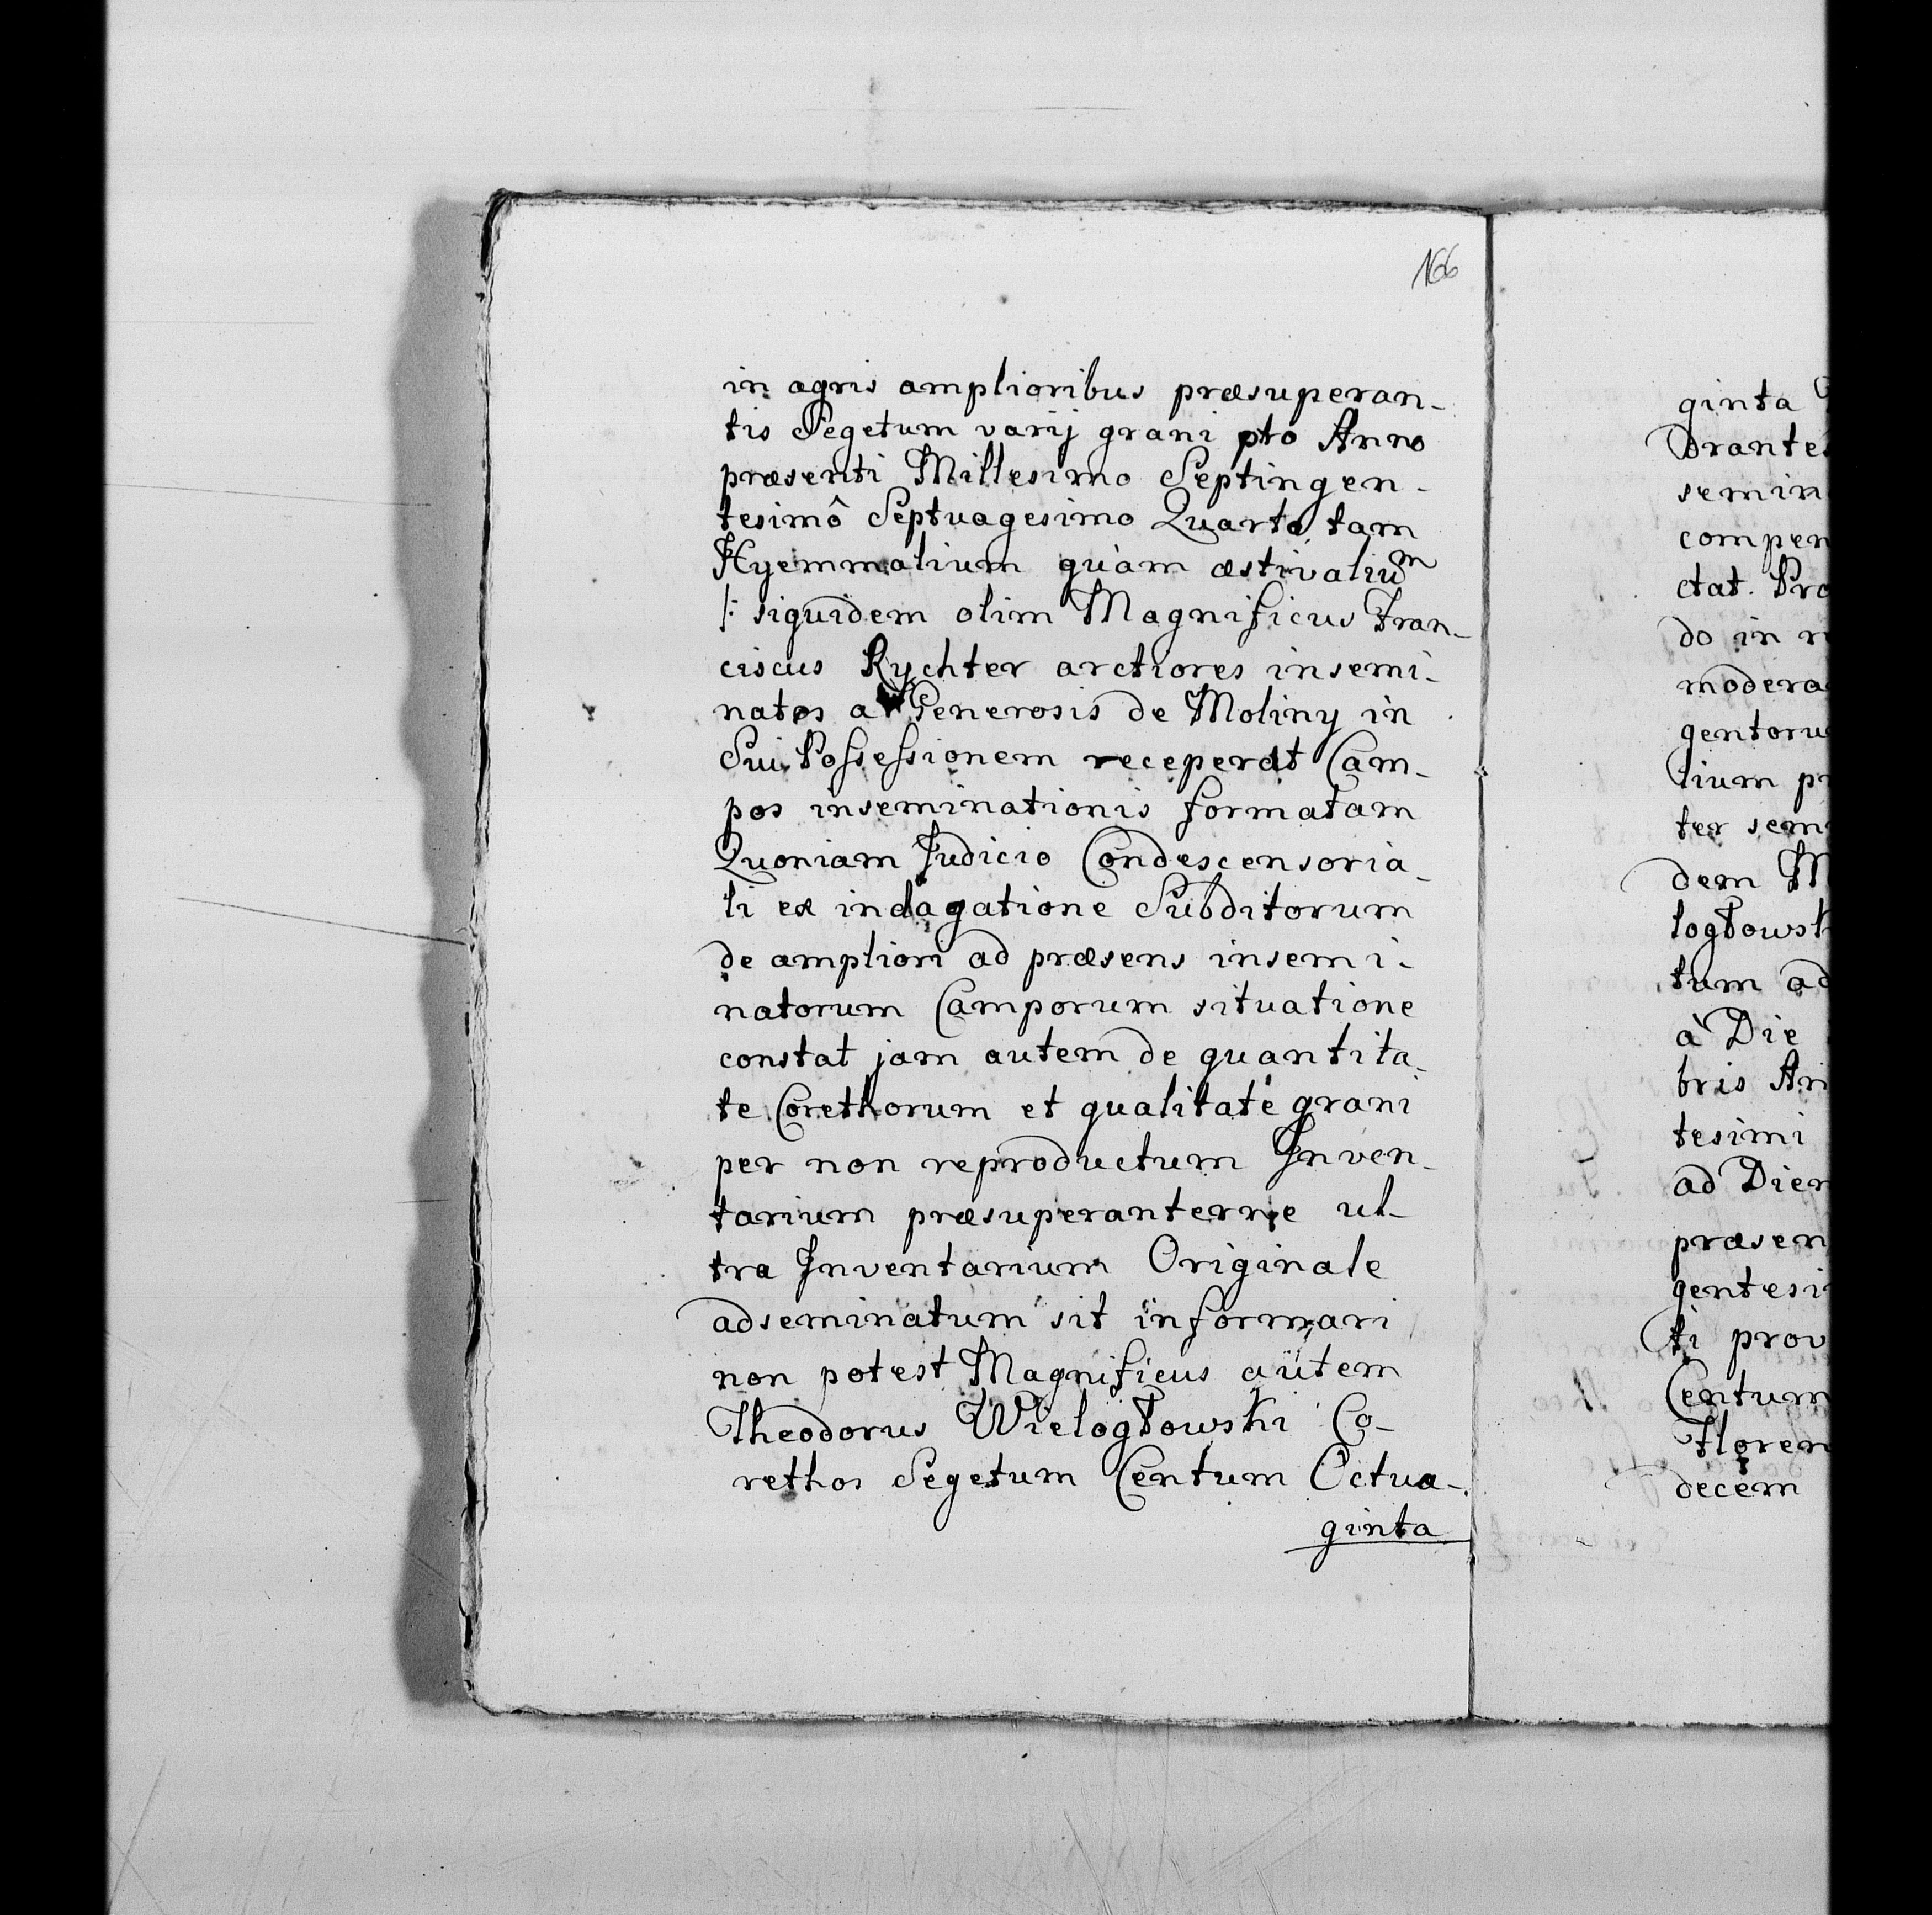 166
in agris amplioribus præsuperan-
tis Segetum varij grani pto Anno
præsenti Millesimo Septingen-
tesimô Septuagesimo Quarto tam
Hyemmalium quàm æstivalium
/: siquidem olim Magnificus Fran-
ciscus Rychter arctiores insemi-
natos a Generosis de Moliny in
Sui Possessionem receperat Cam-
pos inseminationis formatam
Quoniam Judicio Condescensoria-
li ex indagatione Subditorum
de ampliori ad præsens insemi-
natorum Camporum situatione
constat jam autem de quantita-
te Corethorum et qualitate grani
per non reproductum Inven-
tarium præsuperanterne ul-
tra Inventarium Originale
adseminatum sit informari
non potest Magnificus autem
Theodorus Wielogłowski Co-
rethos Segetum Centum Octua-
ginta
ginta
orantes
semin
compen
ctat. Pro
do in r
modera
gentoru
lium pr
ter sem
dem M
logłowsk
tum ad
à Die
bris An
tesimi
ad Diem
præsen
gentesi
ti prov
Centum
Floren
decem